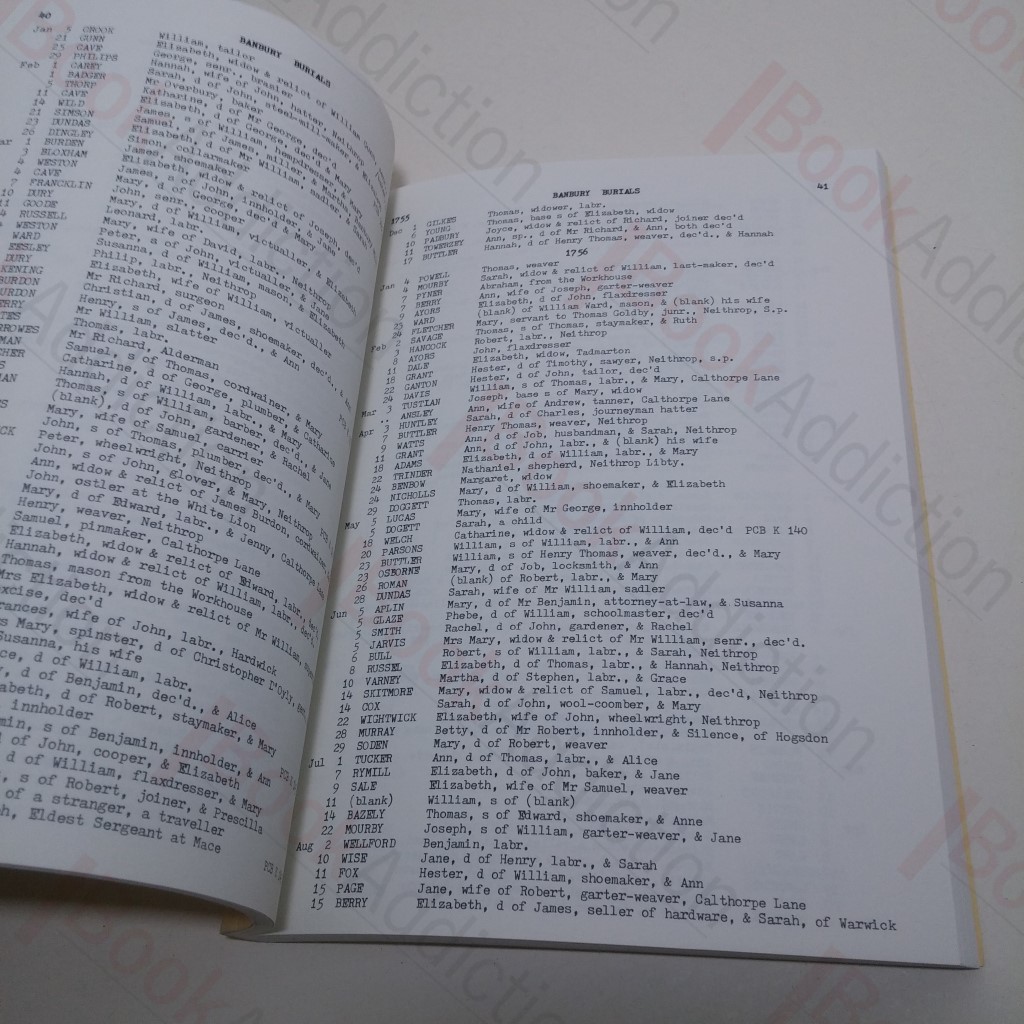 40
BANBURY BURIALS
Jan 5 CROOK William, tailor
21 GUNN Elizabeth, widow & relict of William
25 CAVE George, senr., brasier
29 PHILIPS Hannah, wife of John, hatter, Neithrop
Feb 1 CAREY Sarah, d of John, steel-mill-maker, &
1 BADGER Mr Overbury, baker
5 THORP Katharine, d of Mr George, dec'd
11 CAVE Elizabeth, d of George, dec'd
14 WILD James, s of William, hempdresser, & Mary
21 SIMSON Samuel, s of James, miller, & Martha
23 DUNDAS Elizabeth, d of Mr William, &
26 DINGLEY Simon, collarmaker
ar 1 BURDEN James, shoemaker
3 BLOXHAM Elizabeth, widow & relict of Joseph, dec'd
4 WESTON James, s of John, innholder, & Jane
4 CAVE Mary, d of George, dec'd, & Mary
7 FRANCKLIN John, senr., cooper
10 DURY Mary, d of William, victualler, & Elizabeth
11 GOODE Leonard, labr.
4 RUSSELL Mary, wife of David, labr., Neithrop
WESTON Peter, s of John, victualler, & Jane
WARD Susanna, d of William, mason, & Elizabeth
EESLEY Philip, labr., Neithrop
DURY Elizabeth, wife of William, victualler
KENING Mr Richard, surgeon
BURDON Christian, d of James, shoemaker, dec'd.,
URDON Henry, s of James, dec'd., & Ann
ERRY Mr William, slatter
TES Thomas, labr.
RROWES Mr Richard, Alderman
MAN Samuel, s of Thomas, cordwainer, & Mary
CHER Catharine, d of George, plumber, & Catharine
S Hannah, d of William, labr., & Mary
MAN Thomas, s of William, barber, dec'd., & Jane
(blank), d of John, gardener, & Rachel
S Mary, wife of Samuel, Carrier
John, s of Thomas, plumber, dec'd., & Mary
CK Peter, wheelwright, Neithrop
John, s of John, glover, & Mary, Neithrop
Ann, widow & relict of James Burdon, cordwainer
John, ostler at the White Lion
Mary, d of Edward, labr., & Jenny, Calthorpe Lane
Henry, weaver, Neithrop
Samuel, pinmaker, Calthorpe Lane
Elizabeth, widow & relict of Edward, labr., dec'd
Hannah, widow & relict of William, labr., dec'd.
Thomas, mason from the Workhouse
Mrs Elizabeth, widow & relict of Mr William,
xcise, dec'd
rances, wife of John, labr., Hardwick
s Mary, spinster, d of Christopher D'Oyly,
usanna, his wife
ce, d of William, labr.
, d of Benjamin, dec'd., & Alice
abeth, d of Robert, staymaker, & Mary
innholder
min, s of Benjamin, innholder, & Ann
d of John, cooper, & Elizabeth
d of William, flaxdresser, & Mary
, s of Robert, joiner, & Prescilla
of a stranger, a traveller
h, Eldest Sergeant at Mace
BANBURY BURIALS 41
1755
Dec 1 GILKES Thomas, widower, labr.
6 YOUNG Thomas, base s of Elizabeth, widow
10 PADBURY Joyce, widow & relict of Richard, joiner dec'd
11 TOWERZEY Ann, sp., d of Mr Richard, & Ann, both dec'd
17 BUTTLER Hannah, d of Henry Thomas, weaver, dec'd., & Hannah
1756
Jan 4 POWELL Thomas, weaver
4 MOURBY Sarah, widow & relict of William, last-maker, dec'd
7 PYNER Abraham, from the Workhouse
7 BERRY Ann, wife of Joseph, garter-weaver
9 AYORS Elizabeth, d of John, flaxdresser
23 WARD (blank) of William Ward, mason, & (blank) his wife
24 FLETCHER Mary, servant to Thomas Goldby, junr., Neithrop, S.p.
Feb 2 SAVAGE Thomas, s of Thomas, staymaker, & Ruth
3 HANCOCK Robert, labr., Neithrop
8 AYORS John, flaxdresser
11 DALE Elizabeth, widow, Tadmarton
18 GRANT Hester, d of Timothy, sawyer, Neithrop, s.p.
22 GANTON Hester, d of John, tailor, dec'd
24 DAVIS William, s of Thomas, labr., & Mary, Calthorpe Lane
Mar 3 TUSTIAN Joseph, base s of Mary, widow
.. ANSLEY Ann, wife of Andrew, tanner, Calthorpe Lane
Apr 3 HUNTLEY Sarah, d of Charles, journeyman hatter
7 BUTTLER Henry Thomas, weaver, Neithrop
9 WATTS Ann, d of Job, husbandman, & Sarah, Neithrop
11 GRANT Ann, d of John, labr., & (blank) his wife
18 ADAMS Elizabeth, d of William, labr., & Mary
22 TRINDER Nathaniel, shepherd, Neithrop Libty.
24 BENBOW Margaret, widow
24 NICHOLLS Mary, d of William, shoemaker, & Elizabeth
29 DOGGETT Thomas, labr.
May 5 LUCAS Mary, wife of Mr George, innholder
5 DOGETT Sarah, a child
18 WELCH Catharine, widow & relict of William, dec'd PCB K 140
20 PARSONS William, s of William, labr., & Ann
23 BUTTLER William, s of Henry Thomas, weaver, dec'd., & Mary
23 OSBORNE Mary, d of Job, locksmith, & Ann
26 ROMAN (blank) of Robert, labr., & Mary
28 DUNDAS Sarah, wife of Mr William, sadler
Jun 5 APLIN Mary, d of Mr Benjamin, attorney-at-law, & Susanna
5 GLAZE Phebe, d of William, schoolmaster, dec'd
5 SMITH Rachel, d of John, gardener, & Rachel
5 JARVIS Mrs Mary, widow & relict of Mr William, senr., dec'd.
6 BULL Robert, s of William, labr., & Sarah, Neithrop
8 RUSSEL Elizabeth, d of Thomas, labr., & Hannah, Neithrop
10 VARNEY Martha, d of Stephen, labr., & Grace
14 SKITMORE Mary, widow & relict of Samuel, labr., dec'd, Neithrop
14 COX Sarah, d of John, wool-coomber, & Mary
22 WIGHTWICK Elizabeth, wife of John, wheelwright, Neithrop
28 MURRAY Betty, d of Mr Robert, innholder, & Silence, of Hogsdon
29 SODEN Mary, d of Robert, weaver
Jul 1 TUCKER Ann, d of Thomas, labr., & Alice
7 RYMILL Elizabeth, d of John, baker, & Jane
9 SALE Elizabeth, wife of Mr Samuel, weaver
11 (blank) William, s of (blank)
14 BAZELY Thomas, s of Edward, shoemaker, & Anne
22 MOURBY Joseph, s of William, garter-weaver, & Jane
Aug 2 WELLFORD Benjamin, labr.
10 WISE Jane, d of Henry, labr., & Sarah
11 FOX Hester, d of William, shoemaker, & Ann
15 PAGE Jane, wife of Robert, garter-weaver, Calthorpe Lane
15 BERRY Elizabeth, d of James, seller of hardware, & Sarah, of Warwick